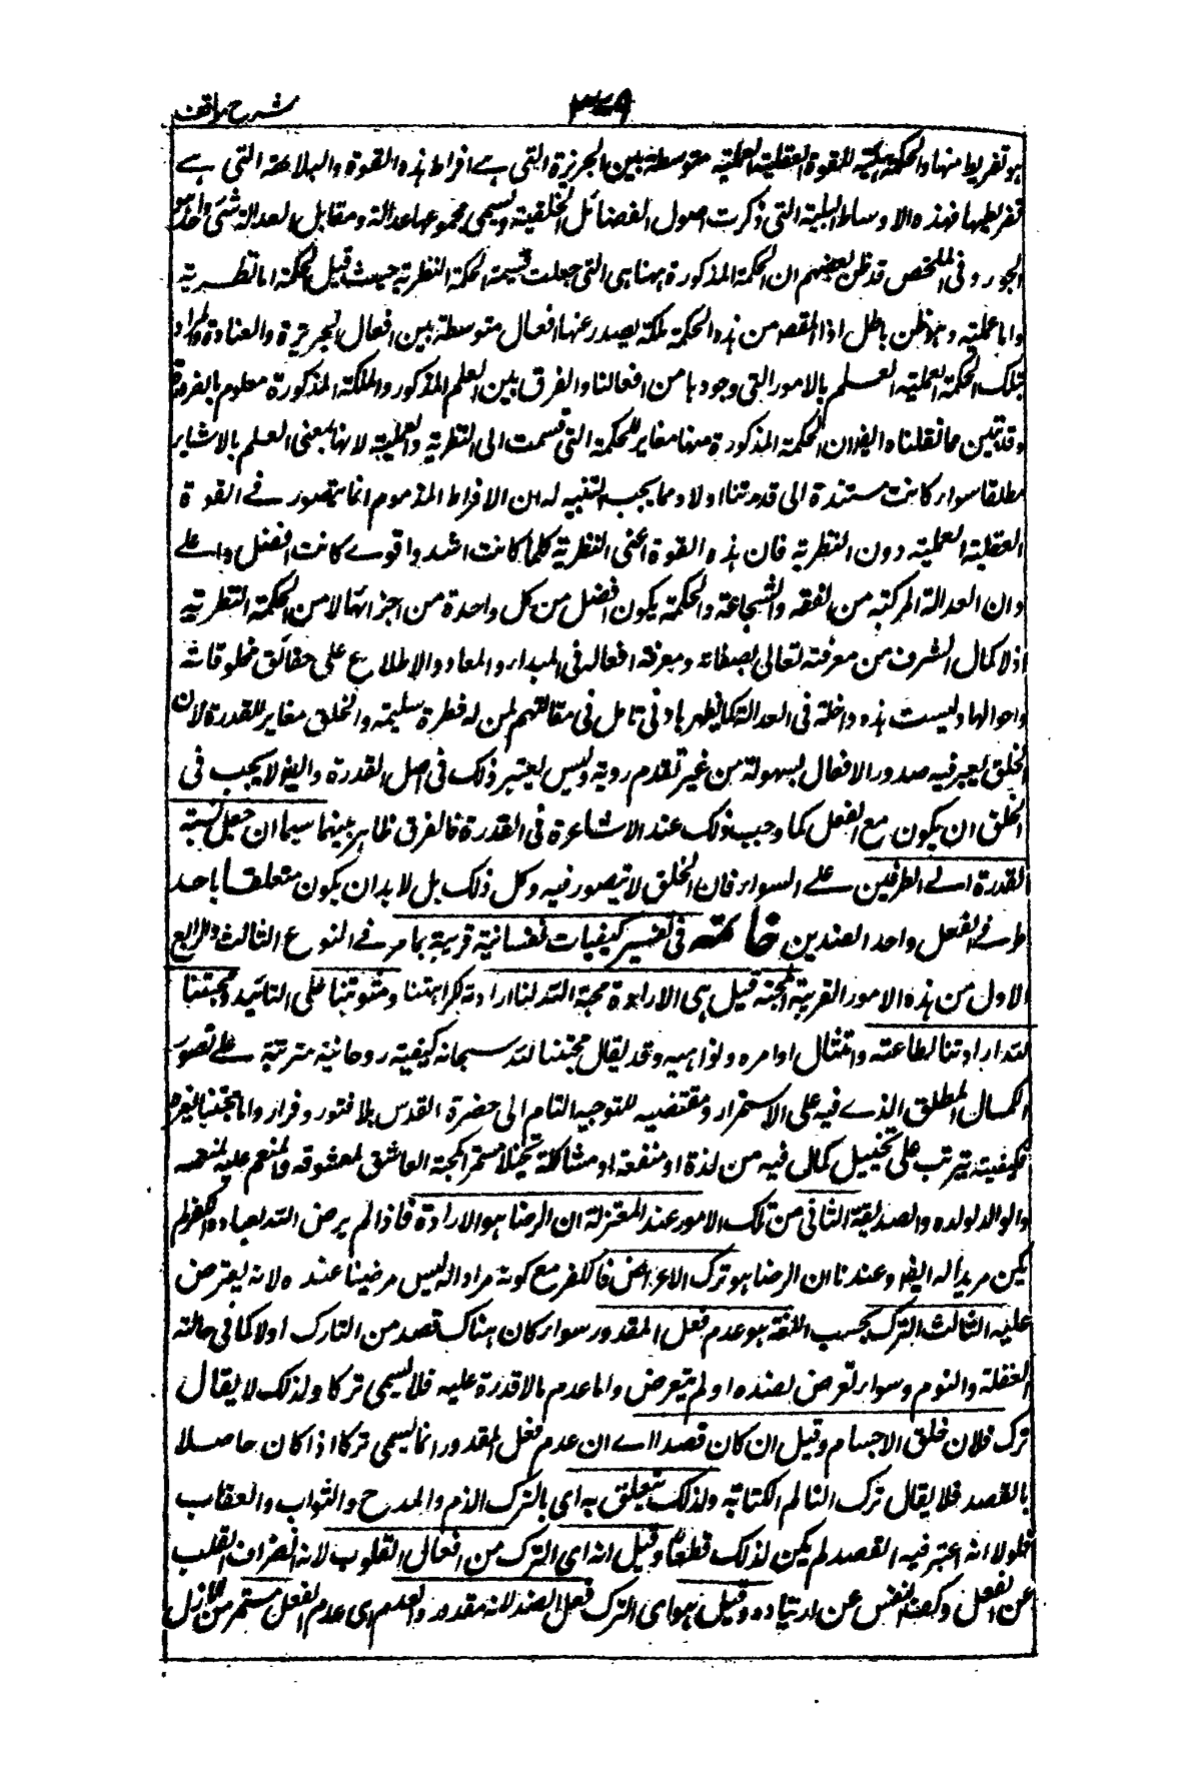 شرح مواقف
٣٧٩
هو تفريطها والحكمة هيئة للقوة العقلية العملية متوسطة بين الجربزة التي هے افراط هذه القوة والبلاهة التي هے
تفريطها فهذه الاوساط الثلثة التي ذكرت اصول الفضائل الخلقية ويسمى مجموعها عدالة ومقابل العدالة شئ واحد هو
الجور وفى الملخص قد ظن بعضهم ان الحكمة المذكورة ههنا هى التى جعلت قسيمة الحكمة النظرية حيث قيل الحكمة اما نظرية
واما عملية وهو ظن باطل اذ المقصد من هذه الحكمة ملكة يصدر عنها افعال متوسطة بين افعال الجربزة والغباوة والمراد
بتلك الحكمة العملية العلم بالامور التى وجودها من افعالنا والفرق بين العلم المذكور والملكة المذكورة معلوم بالضرورة
وقد تبين مما نقلناه ايضا ان الحكمة المذكورة ههنا مغايرة للحكمة التى قسمت الى النظرية والعملية لانها بمعنى العلم بالاشياء
مطلقا سواء كانت مستندة الى قدرتنا اولا ومما يجب التنبيه له ان الافراط المذموم انما يتصور فے القوة
العقلية العملية دون النظرية فان هذه القوة اعنى النظرية كلما كانت اشد واقوے كانت افضل واعلے
وان العدالة المركبة من العفة والشجاعة والحكمة يكون افضل من كل واحدة من اجزائها لا من الحكمة النظرية
اذ لا كمال اشرف من معرفته تعالى بصفاته ومعرفة افعاله فى المبداء والمعاد والاطلاع على حقائق مخلوقاته
واحوالها وليست هذه داخلة فى العدالة كما يظهر بادنى تامل فى مقالتهم لمن له فطرة سليمة والخلق مغاير للقدرة لان
الخلق يعتبر فيه صدور الافعال بسهولة من غير تقدم روية وليس يعتبر ذلك فى اصل القدرة وايضا لا يجب فى
الخلق ان يكون مع الفعل كما وجب ذلك عند الاشاعرة فى القدرة فالفرق ظاهر بينهما سيما ان جعل نسبة
القدرة الے الطرفين علے السواء فان الخلق لا يتصور فيه وكل ذلك بل لا بد ان يكون متعلقا باحد
طرفے الفعل واحد الضدين خاتمة فى تفسير كيفيات نفسانية قريبة بما مر فے النوع الثالث والرابع
الاول من هذه الامور القريبة المحبة قيل هى الارادة فمحبة الله لنا ارادته لكرامتنا ومثوبتنا على التائيد ومحبتنا
لله ارادتنا لطاعته وامتثال اوامره ونواهيه وقد يقال محبتنا لله سبحانه كيفية روحانية مترتبة علے تصور
الكمال المطلق الذے فيه على الاستمرار ومقتضية للتوجه التام الى حضرة القدس بلا فتور وفرار واما محبتنا لغيره
فكيفية يترتب على تخييل كمال فيه من لذة او منفعة او مشاكلة تخيلا مستمرا كمحبة العاشق لمعشوقه والمنعم عليه لمنعمه
والوالد لولده والصديق الثانى من تلك الامور عند المعتزلة ان الرضا هو الارادة فاذا لم يرض الله لعباده الكفر لم
يكن مريدا له ايضا وعندنا ان الرضا هو ترك الاعراض فالكفر مع كونه مرادا له ليس مرضيا عنده لانه يعترض
عليه الثالث الترك بحسب اللغة هو عدم فعل المقدور سواء كان هناك قصد من التارك اولا كما فى حالة
الغفلة والنوم وسواء تعرض لضده او لم يتعرض واما عدم ما لا قدرة عليه فلا يسمى تركا ولذلك لا يقال
ترك فلان خلق الاجسام وقيل ان كان قصدا اے ان عدم فعل المقدور انما يسمى تركا اذا كان حاصلا
بالقصد فلا يقال ترك النائم الكتابة ولذلك يتعلق به اى بالترك الذم والمدح والثواب والعقاب
فلولا انه اعتبر فيه القصد لم يكن لذلك قطعا وقيل انه اى الترك من افعال القلوب لانه انصراف القلب
عن الفعل وكف النفس عن ارتياده وقيل هو اى الترك فعل الضد لانه مقدور والعدم اى عدم الفعل مستمر من الازل